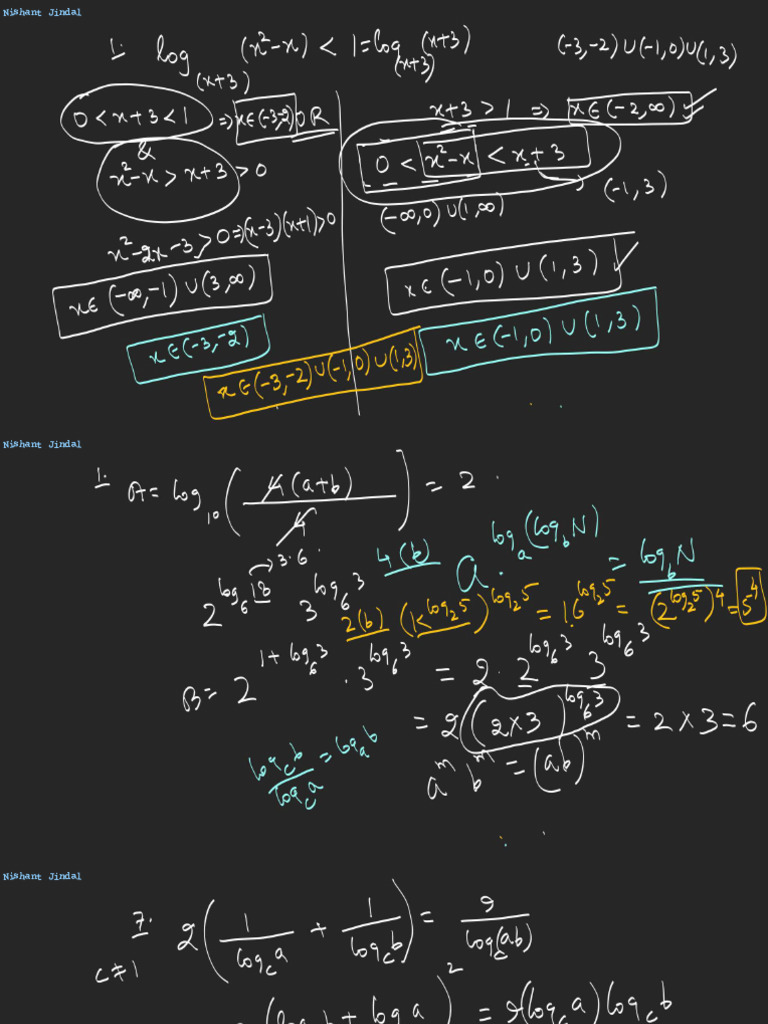 Nishant Jindal
1. log_(x+3) (x²-x) < 1 = log_(x+3) (x+3)
(-3,-2) ∪ (-1,0) ∪ (1,3)
0 < x+3 < 1 ⇒ x∈(-3,-2) OR
x+3 > 1 ⇒ x∈(-2,∞) ✓
&
x²-x > x+3 > 0
0 < x²-x < x+3
(-1,3)
(-∞,0) ∪ (1,∞)
x²-2x-3 > 0 ⇒ (x-3)(x+1) > 0
x∈(-∞,-1) ∪ (3,∞)
x∈(-1,0) ∪ (1,3) ✓
x∈(-3,-2)
x∈(-1,0) ∪ (1,3)
x∈(-3,-2) ∪ (-1,0) ∪ (1,3)
Nishant Jindal
1. A = log_10 (4(a+b)/4) = 2.
3·6.
2^(log_6 18) 3^(log_6 3)
4(b) a^(log_a (log_b N)) = log_b N
2(b) (K^(log_2 5))^(log_2 5) = 16^(log_2 5) = (2^(log_2 5))^4 = 5^4
B = 2^(1+log_6 3) · 3^(log_6 3) = 2·2^(log_6 3) 3^(log_6 3)
= 2(2×3)^(log_6 3) = 2×3 = 6
log_c b / log_c a = log_a b
a^m b^m = (ab)^m
Nishant Jindal
7. 2(1/log_c a + 1/log_c b) = 9/log_c(ab)
c≠1
= (log b + log a)² = 9(log_c a) log_c b